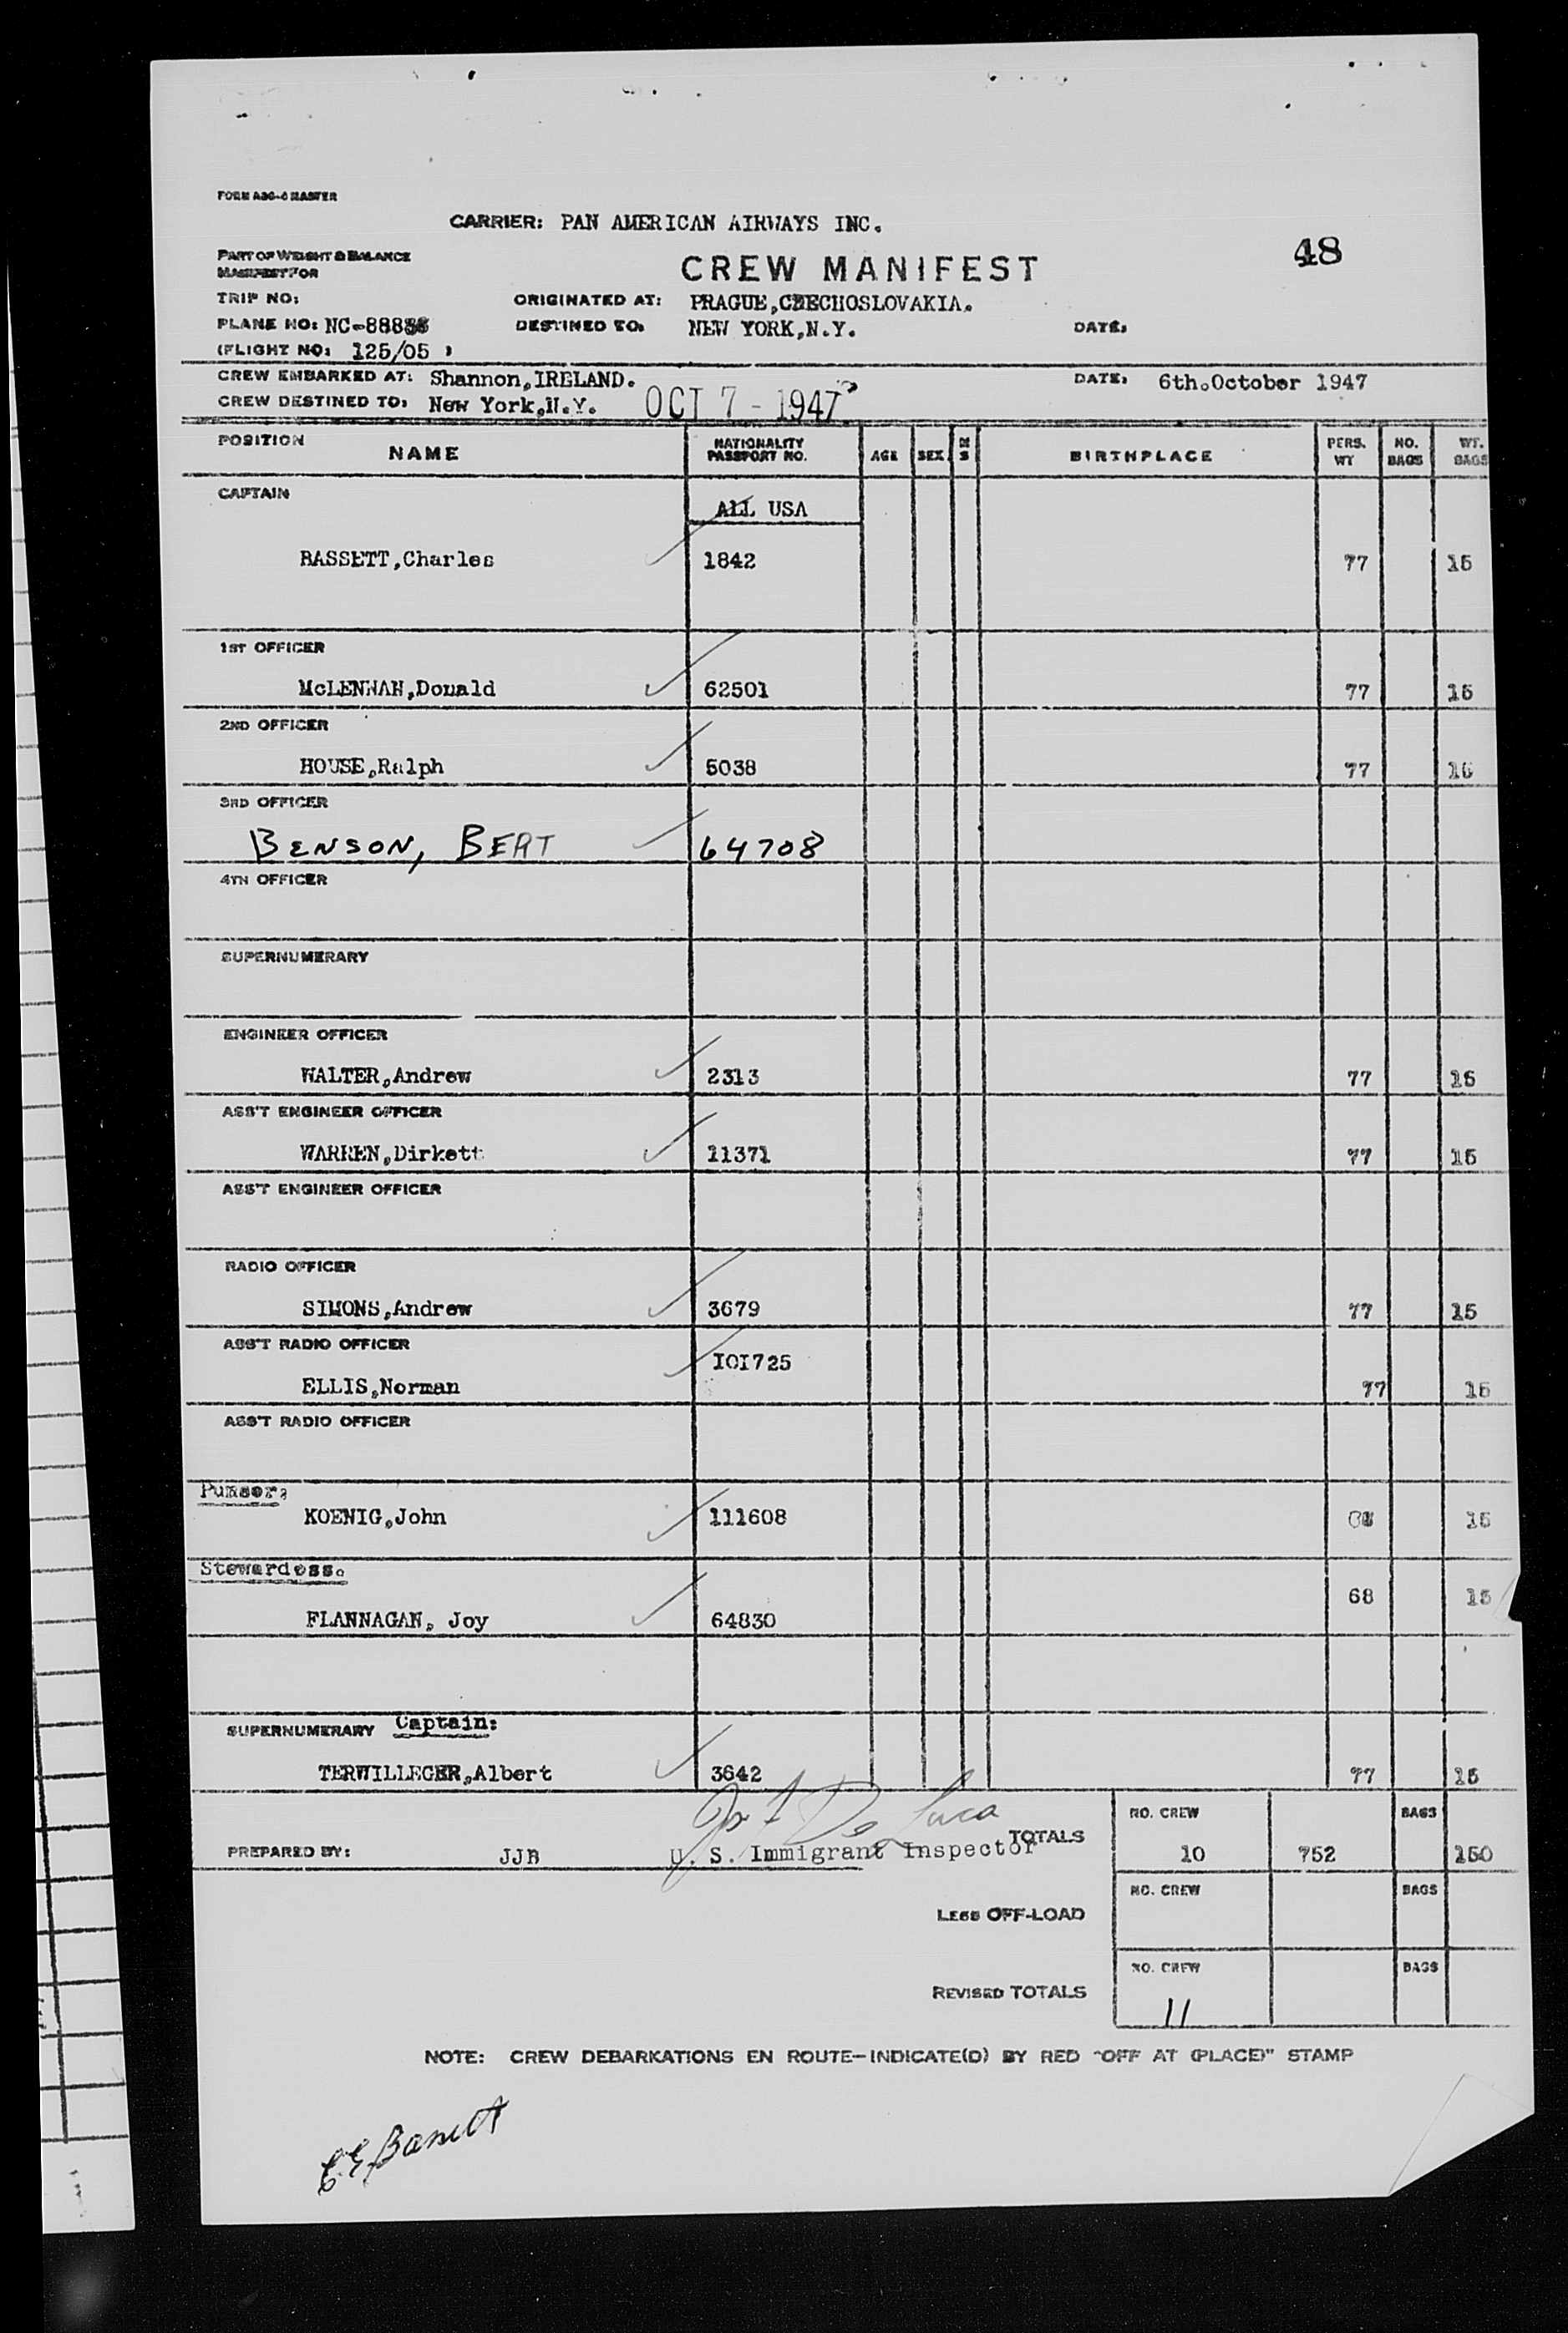 FORM A30-6 MASTER
CARRIER: PAN AMERICAN AIRWAYS INC.
PART OF WEIGHT & BALANCE
MANIFEST FOR
CREW MANIFEST
48
TRIP NO:
ORIGINATED AT: PRAGUE,CZECHOSLOVAKIA.
PLANE NO: NC-888
DESTINED TO: NEW YORK,N.Y.
DATE:
(FLIGHT NO: 125/05 )
CREW EMBARKED AT: Shannon,IRELAND.
DATE: 6th.October 1947
CREW DESTINED TO: New York,N.Y.
OCT 7 - 1947
POSITION NAME NATIONALITY PASSPORT NO. AGE SEX M S BIRTHPLACE PERS. WT NO. BAGS WT. BAGS
CAPTAIN
ALL USA
BASSETT,Charles 1842 77 15
1ST OFFICER
McLENNAN,Donald 62501 77 15
2ND OFFICER
HOUSE,Ralph 5038 77 15
3RD OFFICER
BENSON, BERT 64708
4TH OFFICER
SUPERNUMERARY
ENGINEER OFFICER
WALTER,Andrew 2313 77 15
ASS'T ENGINEER OFFICER
WARREN,Dirkett 11371 77 15
ASS'T ENGINEER OFFICER
RADIO OFFICER
SIMONS,Andrew 3679 77 15
ASS'T RADIO OFFICER
IOI725
ELLIS,Norman 77 15
ASS'T RADIO OFFICER
Purser;
KOENIG,John 111608 15
Stewardess.
68 15
FLANNAGAN, Joy 64830
SUPERNUMERARY Captain:
TERWILLEGER,Albert 3642 77 15
Jos F De Luca
NO. CREW BAGS
TOTALS
PREPARED BY: JJB U. S. Immigrant Inspector 10 752 150
NO. CREW BAGS
LESS OFF-LOAD
NO. CREW BAGS
REVISED TOTALS
11
NOTE: CREW DEBARKATIONS EN ROUTE-INDICATE(D) BY RED "OFF AT (PLACE)" STAMP
C.E. Bassett